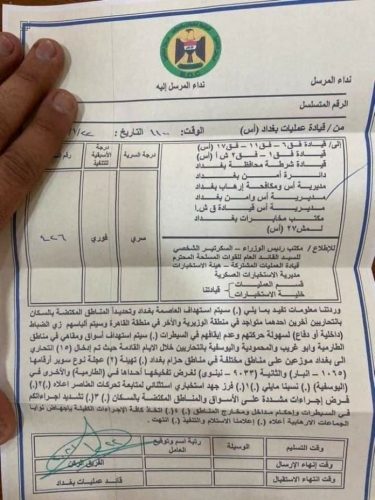 نداء المرسل
نداء المرسل إليه
الرقم المتسلسل
B.O.C
من / قيادة عمليات بغداد (أس) الوقت: ١١٠٠ التاريخ:
إلى/ قيادة فق٦ – فق١١ – فق١٧ (أس)
قيادة فق١ – فق٢ ش أ (أس)
قيادة شرطة محافظة بغداد
دائرة أمن بغداد
مديرية أس ومكافحة إرهاب بغداد
مديرية أس وأمن بغداد
مديرية أس قيادة ق ش ا
مكتب مخابرات بغداد
لمش٢٧ (أس)
درجة السرية
درجة الأسبقية للتنفيذ
سري
فوري
للإطلاع / مكتب رئيس الوزراء – السكرتير الشخصي
للسيد القائد العام للقوات المسلحة المحترم
قيادة العمليات المشتركة – هيئة الاستخبارات
مديرية الاستخبارات العسكرية
قيادتنا / قسم العمليات
خلية الاستخبارات
وردتنا معلومات تفيد بما يلي (.) سيتم استهداف العاصمة بغداد وتحديداً المناطق المكتضة بالسكان
بانتحاريين اثنين احدهما متواجد في منطقة الوزيرية والآخر في منطقة القاهرة وسيتم البأسهم زي الضباط
(داخلية أو دفاع) لسهولة حركتهم وعدم إيقافهم في السيطرات (.) سيتم استهداف أسواق ومناطق في
الطارمية وأبو غريب والمحمودية واليوسفية بانتحاريين خلال الأيام القادمة حيث تم إدخال (١٥) انتحاري
الى بغداد موزعين على مناطق مختلفة في مناطق حزام بغداد (.) تهيئة (٢) عجلة نوع سوبر أرقامها
(١٠٢٥ – أنبار) والثانية (٩٠٣٣ – نينوى) لغرض تفخيخها أحداها في (الطارمية) والأخرى في
(اليوسفية) (.) نسبنا مايلي (.) ١(.) فرز جهد استخباري استثنائي لمتابعة تحركات العناصر أعلاه (.) ٢(.)
فرض إجراءات مشددة على الأسواق والمناطق المكتضة بالسكان (.) ٣(.) تشديد إجراءاتكم
في السيطرات وإحكام مداخل ومخارج المناطق (.) ٤(.) اتخاذ كافة الإجراءات الكفيلة بإجهاض نوايا
الجماعات الإرهابية أعلاه (.) إعلامنا الاستلام والتنفيذ (.) انتهت .
وقت التسليم
الوسيلة
رتبة اسم وتوقيع العامل
وقت إنهاء الإرسال
الفريق الركن
وقت انتهاء الاستقبال
قائد عمليات بغداد